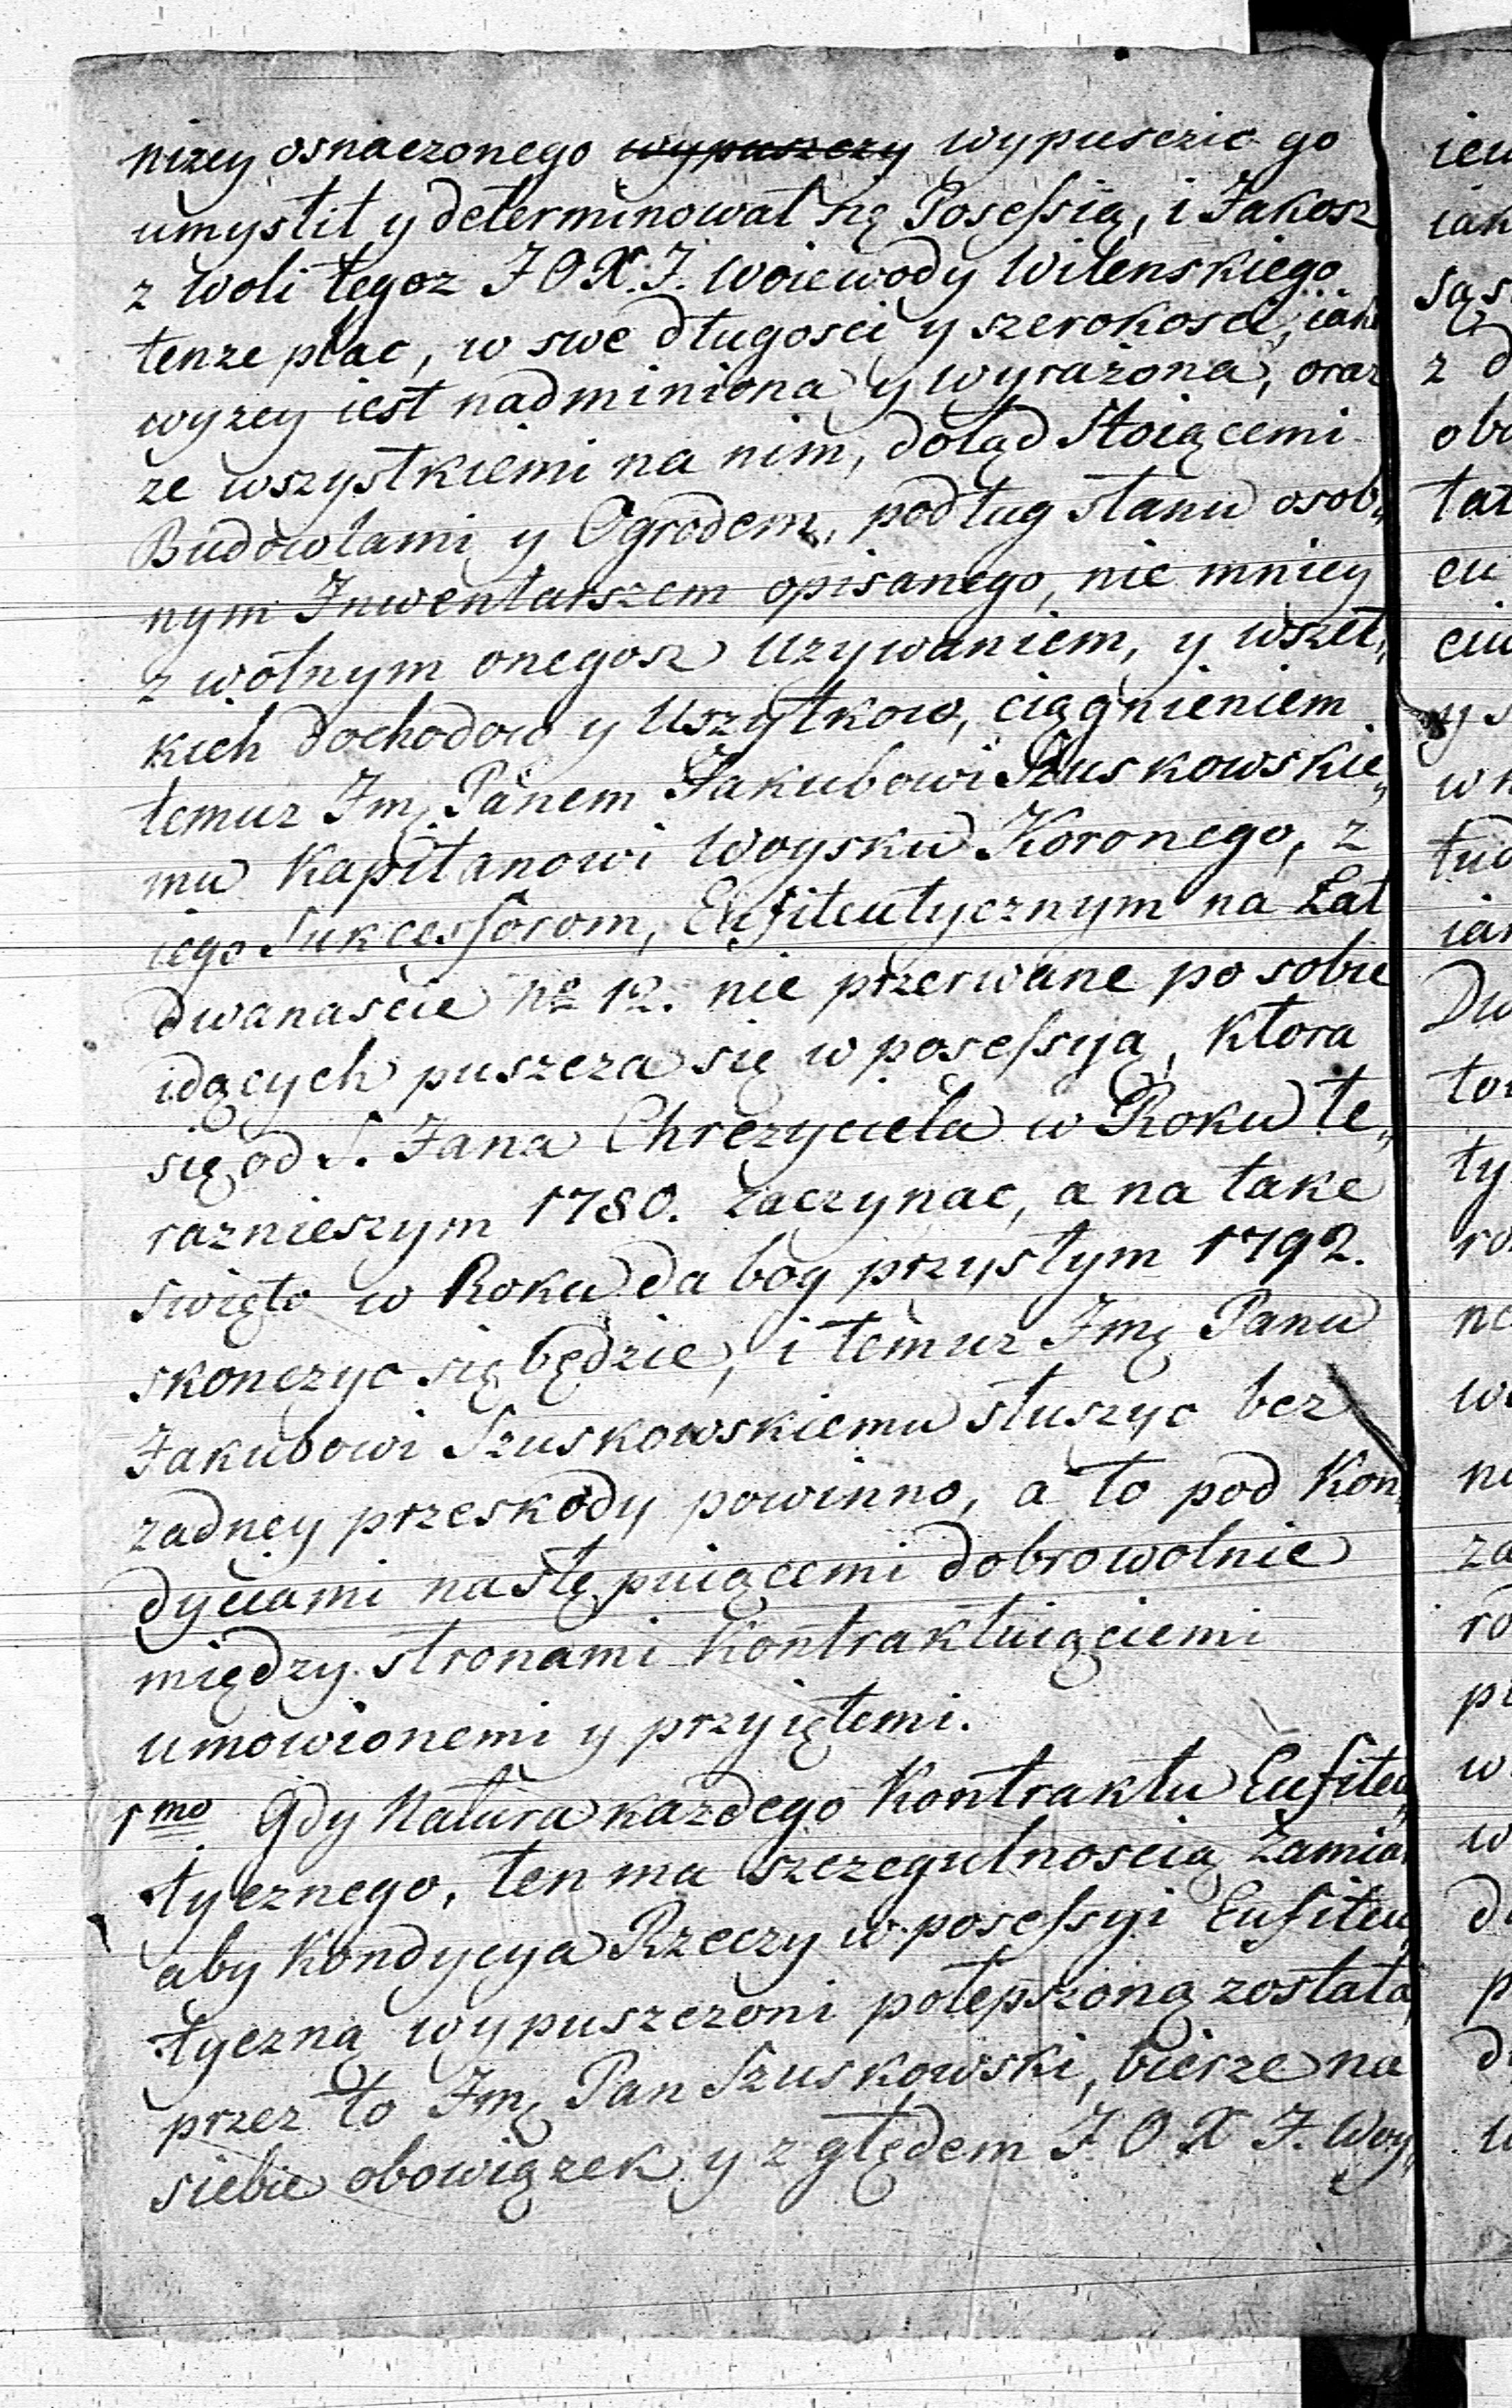 niżey osnaczonego wypuszczy wypusczic go
umyslił y determinował się Posessią, i Jakosz
z woli tegoz J O X. J. Woiewody Wilenskiego
tenze plac, w swe długosci y szerokosci, iak
wyzey iest nadminiona y wyrażona, oraz
ze wszystkiemi na nim, dotąd stoiącemi
Budowlami y Ogrodem, podług stanu osob„
nym Inwentarszem opisanego, nie mniey
z wolnym onegosz uzywaniem, y wszel„
kich dochodow y Uszytkow, ciągnieniem
temuz Jmę Panem Jakubowi Szuskowskie„
mu Kapitanowi Woysku Koronego, z
iego Sukcessorom, Eufiteutycznym na Lat
dwanascie No 12. nie przerwane po sobie
idących puszcza się w posessyą, ktora
się od S. Jana Chrezyciela w Roku te„
raznieszym 1780. zaczynac, a na take
swięto w Roku da bog przystym 1792.
skonczyc się będzie, i temuz Jmę Panu
Jakubowi Szuskowskiemu słuszyc bez
zadney przeskody powinno, a to pod Kon„
dyciami następuiącemi dobrowolnie
między stronami Kontraktuiąciemi
umowionemi y przyiętemi.
1mo Gdy Natura każdego Kontraktu Eufiteu„
tycznego, ten ma szczegulnoscią Zamiar
aby Kondycya Rzeczy w posessyi Eufiteu„
tyczną wypuszczoni polepszoną została,
przez to Jmę Pan Szuskowski, bierze na
siebie obowiązek y zględem J O X J. Woy„
ien
iak
sąs
z d
obo
tat
cu
ciu
y s
w k
tud
iak
Dw
tow
ty
ro
ne
wa
na
za
ro
pr
w
w
do
p
d